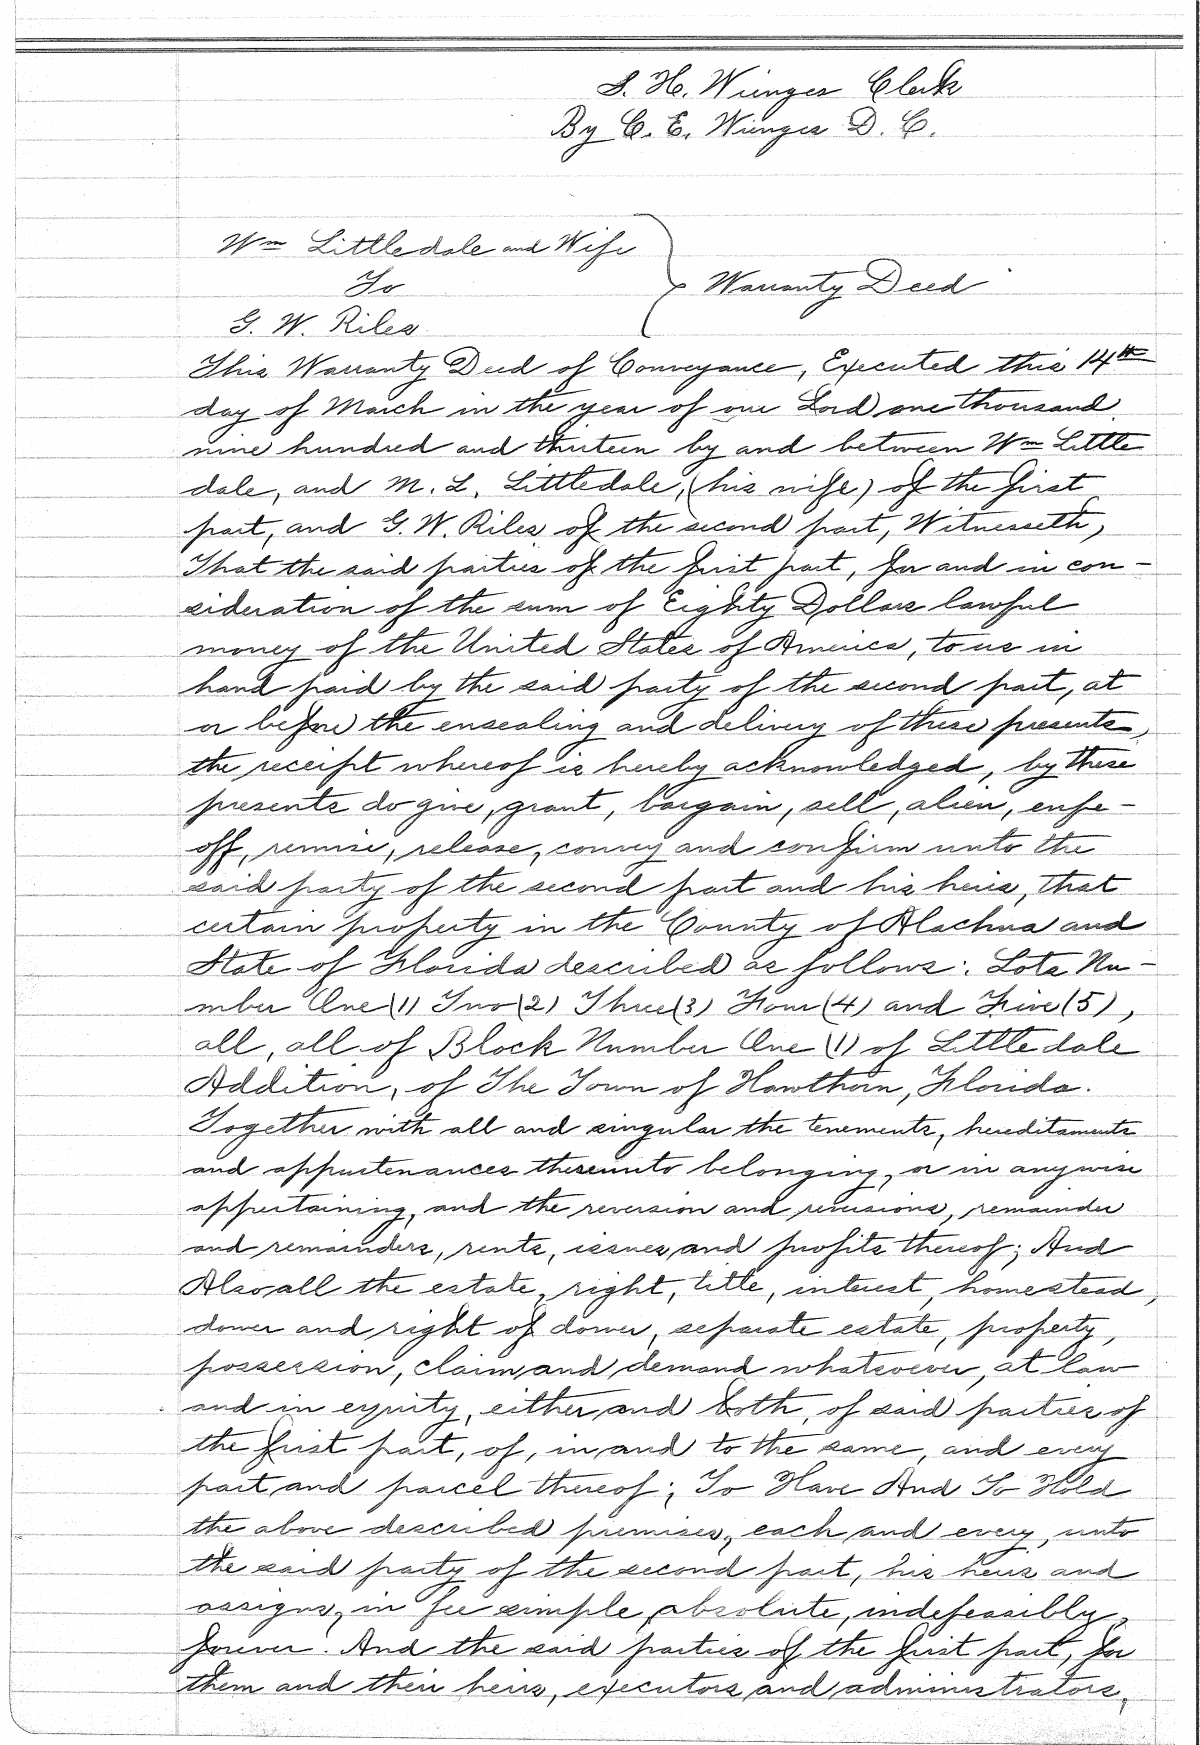 S. H. Wienges Clerk
By C. E. Wienges D. C.
Wm Littledale and Wife
To
G. W. Riles
Warranty Deed
This Warranty Deed of Conveyance, Executed this 14th
day of March in the year of our Lord one thousand
nine hundred and thirteen by and between Wm Little
dale, and M. L. Littledale, (his wife) of the first
part, and G. W. Riles of the second part, Witnesseth,
That the said parties of the first part, for and in con-
sideration of the sum of Eighty Dollars lawful
money of the United States of America, to us in
hand paid by the said party of the second part, at
or before the ensealing and delivery of these presents,
the receipt whereof is hereby acknowledged, by these
presents do give, grant, bargain, sell, alien, enfe-
off, remise, release, convey and confirm unto the
said party of the second part and his heirs, that
certain property in the County of Alachua and
State of Florida described as follows: Lots Nu-
mber One (1) Two (2) Three (3) Four (4) and Five (5),
all, all of Block Number One (1) of Littledale
Addition, of The Town of Hawthorn, Florida.
Together with all and singular the tenements, hereditaments
and appurtenances thereunto belonging, or in anywise
appertaining, and the reversion and reversions, remainder
and remainders, rents, issues, and profits thereof; And
Also all the estate, right, title, interest, homestead,
dower and right of dower, separate estate, property,
possession, claim and demand whatsoever, at law
and in equity, either and both, of said parties of
the first part, of, in, and to the same, and every
part and parcel thereof; To Have And To Hold
the above described premises, each and every, unto
the said party of the second part, his heirs and
assigns, in fee simple, absolute, indefeasibly,
forever. And the said parties of the first part, for
them and their heirs, executors, and administrators,